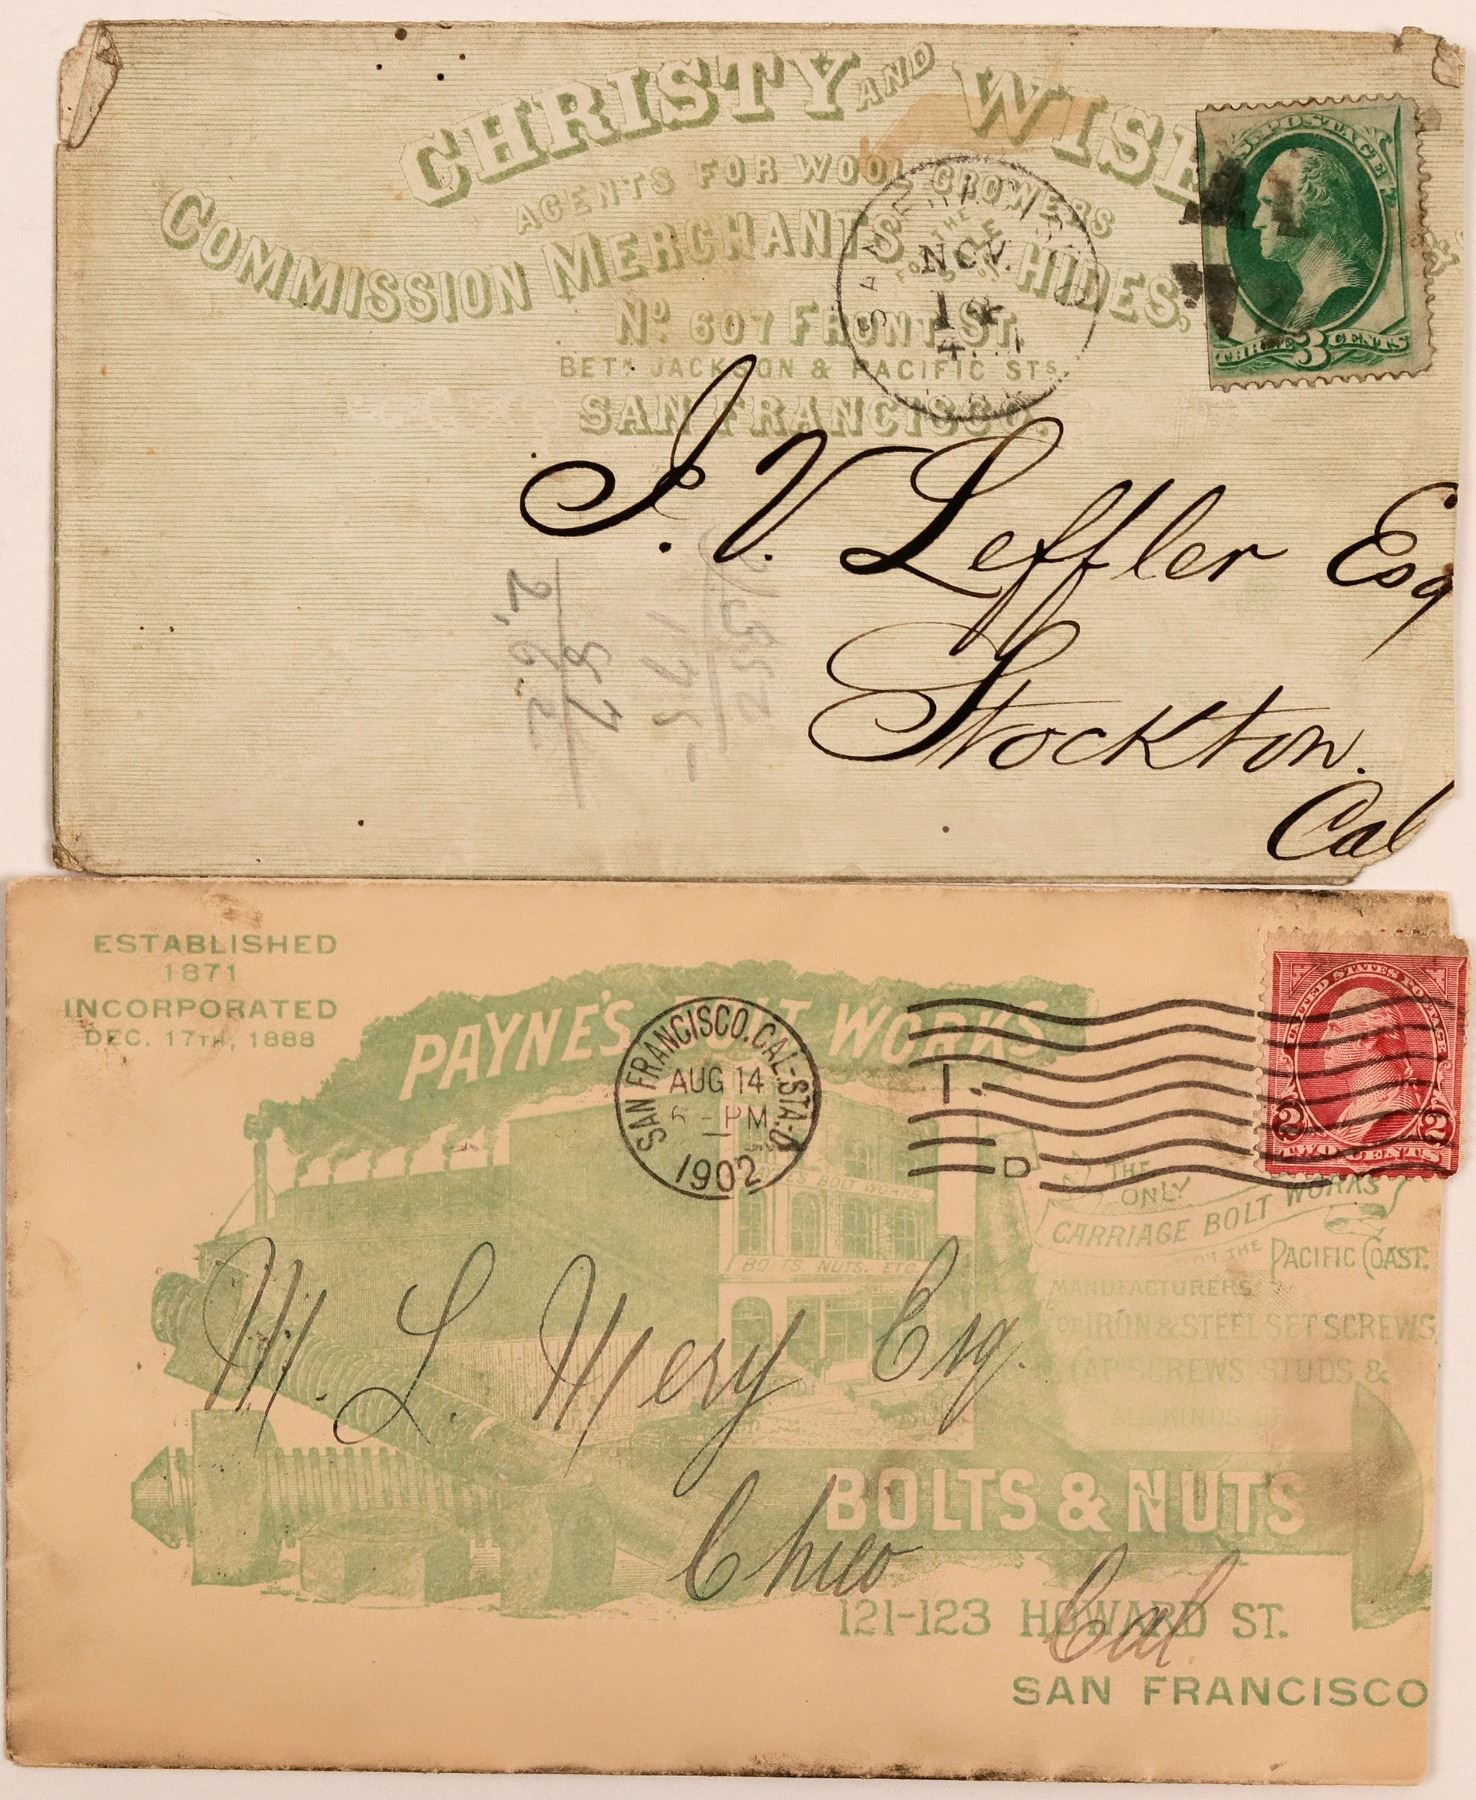 CHRISTY AND WISE
AGENTS FOR WOOL GROWERS
COMMISSION MERCHANTS
THE
HIDES,
No 607 FRONT ST.
BETN JACKSON & PACIFIC STS.
SAN FRANCISCO.
SAN FRANCISCO
NOV.
14
U.S. POSTAGE
THREE 3 CENTS
J. V. Leffler Esq
Stockton.
Cal
175-
87
2.62
ESTABLISHED
1871
INCORPORATED
DEC. 17TH, 1888
PAYNE'S BOLT WORKS.
SAN FRANCISCO, CAL.-STA-D
AUG 14
6 - PM
1902
1
D
UNITED STATES POSTAGE
2 2
TWO CENTS
PAYNE'S BOLT WORKS.
BOLTS, NUTS, ETC.
THE
ONLY
CARRIAGE BOLT WORKS
ON THE PACIFIC COAST.
MANUFACTURERS
OF IRON & STEEL SET SCREWS
CAP SCREWS STUDS, &
ALL KINDS OF
BOLTS & NUTS
M. L. Mery Esq.
Chico
Cal.
121-123 HOWARD ST.
SAN FRANCISCO